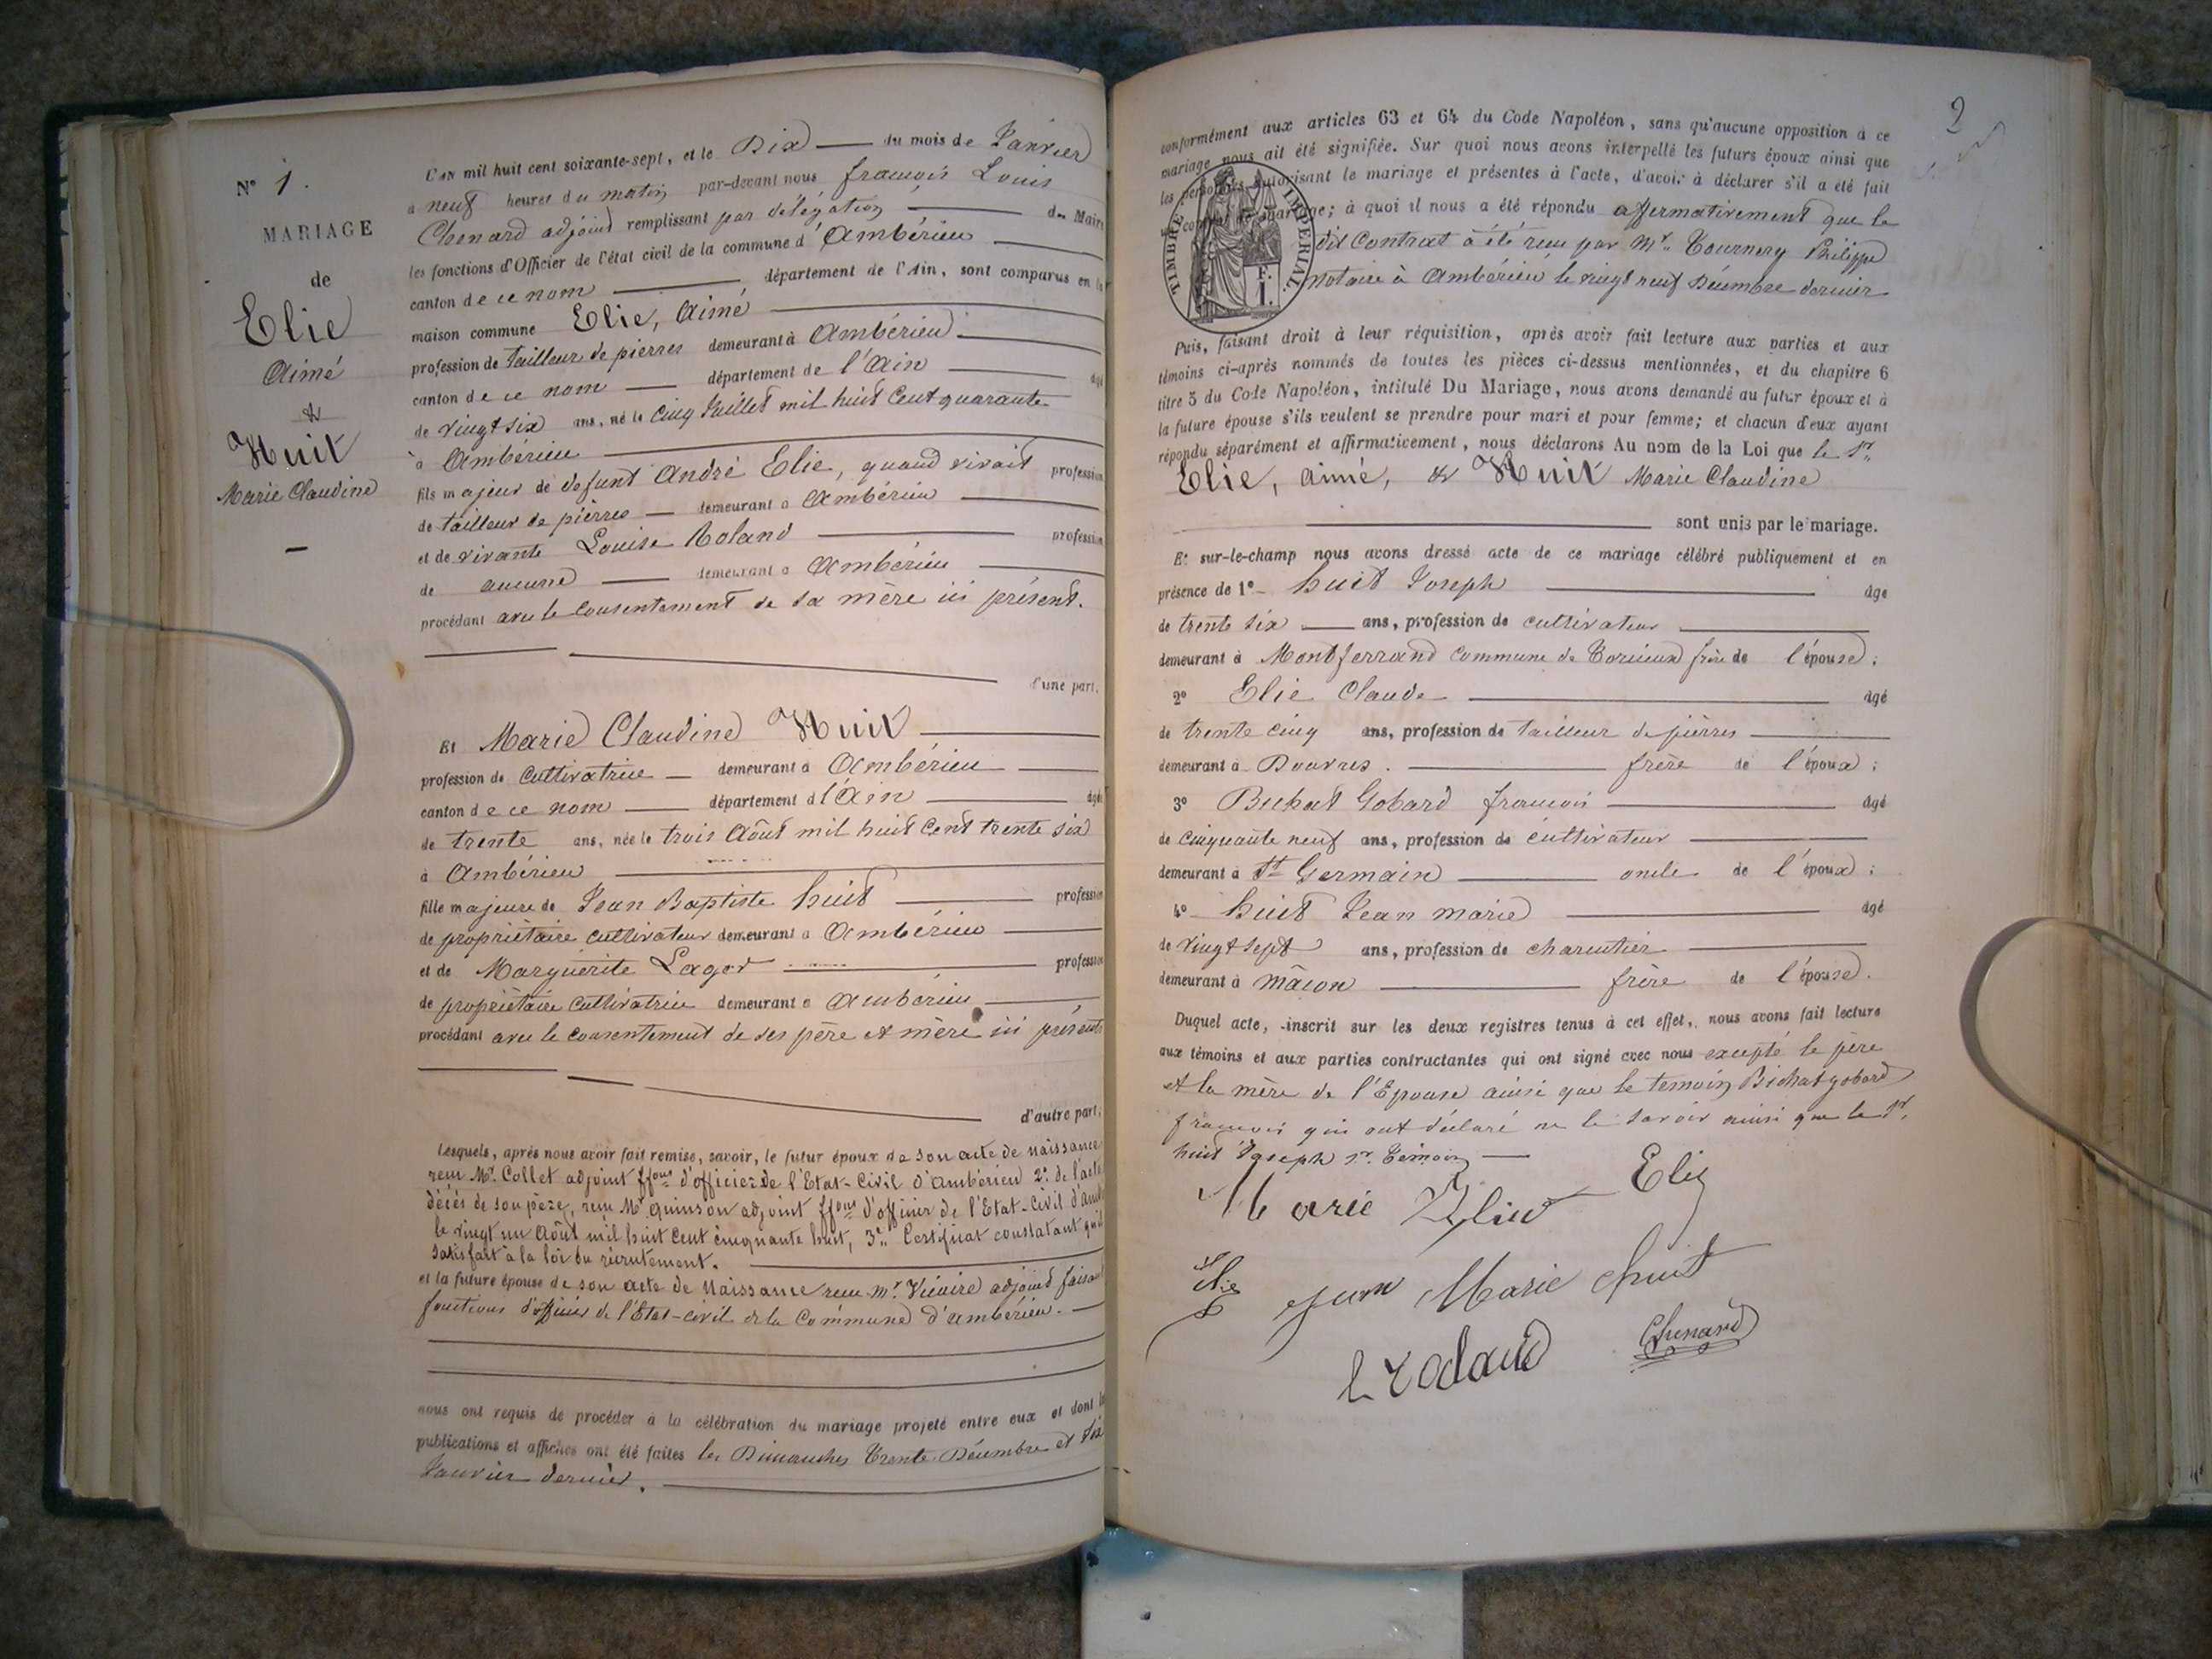 N° 1.
MARIAGE
de
Elie
Aimé
&
Huit
Marie Claudine
L'AN mil huit cent soixante-sept, et le Dix du mois de Janvier
à neuf heures du matin par-devant nous françois Louis
Chenard adjoint remplissant par délégation du Maire
les fonctions d'Officier de l'état civil de la commune d'Ambérieu
canton de ce nom département de l'Ain, sont comparus en la
maison commune Elie, Aimé
profession de tailleur de pierres demeurant à Ambérieu
canton de ce nom département de l'Ain âgé
de vingt six ans, né le cinq Juillet mil huit Cent quarante
à Ambérieu
fils majeur de défunt André Elie, quand vivait profession
de tailleur de pierres demeurant à Ambérieu
et de vivante Louise Roland profession
de aucune demeurant à Ambérieu
procédant avec le consentement de sa mère ici présent.
d'une part.
Et Marie Claudine Huit
profession de Cultivatrice demeurant à Ambérieu
canton de ce nom département d l'Ain âgée
de trente ans, née le trois Août mil huit Cent trente six
à Ambérieu
fille majeure de Jean Baptiste huit profession
de propriétaire cultivateur demeurant à Ambérieu
et de Marguerite Lagor profession
de propriétaire Cultivatrice demeurant à Ambérieu
procédant avec le consentement de ses père et mère ici présents
d'autre part,
Lesquels, après nous avoir fait remise, savoir, le futur époux de son acte de naissance
reçu Mr. Collet adjoint ffons d'officier de l'Etat-Civil d'Ambérieu 2° de l'acte
décès de son père, reçu Mr quinson adjoint ffons d'officier de l'Etat-Civil d'Amb
le vingt un Août mil huit cent cinquante huit, 3° Certificat constatant qu'il
satisfait à la loi du recrutement.
et la future épouse de son acte de Naissance reçu mr. Vicaire adjoint faisant
fonctions d'officier de l'Etat-civil de la Commune d'ambérieu.
nous ont requis de procéder à la célébration du mariage projeté entre eux et dont les
publications et affiches ont été faites les Dimanches Trente Décembre et Six
Janvier dernier.
2
conformément aux articles 63 et 64 du Code Napoléon, sans qu'aucune opposition à ce
mariage nous ait été signifiée. Sur quoi nous avons interpellé les futurs époux ainsi que
les personnes autorisant le mariage et présentes à l'acte, d'avoir à déclarer s'il a été fait
un contrat de mariage; à quoi il nous a été répondu affermativement que le
dit Contrat a été reçu par Mr. Tournery Philippe
notaire à Ambérieu le vingt neuf Décembre dernier
TIMBRE IMPÉRIAL
F.
1.
Puis, faisant droit à leur réquisition, après avoir fait lecture aux parties et aux
témoins ci-après nommés de toutes les pièces ci-dessus mentionnées, et du chapitre 6
titre 5 du Code Napoléon, intitulé Du Mariage, nous avons demandé au futur époux et à
la future épouse s'ils veulent se prendre pour mari et pour femme; et chacun d'eux ayant
répondu séparément et affirmativement, nous déclarons Au nom de la Loi que le Sr.
Elie, aimé, & Huit Marie Claudine
sont unis par le mariage.
Et sur-le-champ nous avons dressé acte de ce mariage célébré publiquement et en
présence de 1° huit Joseph âgé
de trente six ans, profession de cultivateur
demeurant à Montferrand commune de Torcieux frère de l'épouse;
2° Elie Claude âgé
de trente cinq ans, profession de tailleur de pierres
demeurant à Douvres. frère de l'époux;
3° Buchat Gobard françois âgé
de cinquante neuf ans, profession de cultivateur
demeurant à St Germain oncle de l'époux;
4° huit Jean marie âgé
de vingt sept ans, profession de charcutier
demeurant à mâcon frère de l'épouse.
Duquel acte, inscrit sur les deux registres tenus à cet effet, nous avons fait lecture
aux témoins et aux parties contractantes qui ont signé avec nous excepté le père
et la mère de l'Epouse ainsi que le temoin Bichat gobard
françois qui ont déclaré ne le savoir ainsi que le Sr.
huit Joseph 1r. Témoin
Marie Elie
Elie Jean Marie huit
L Roland Chenard